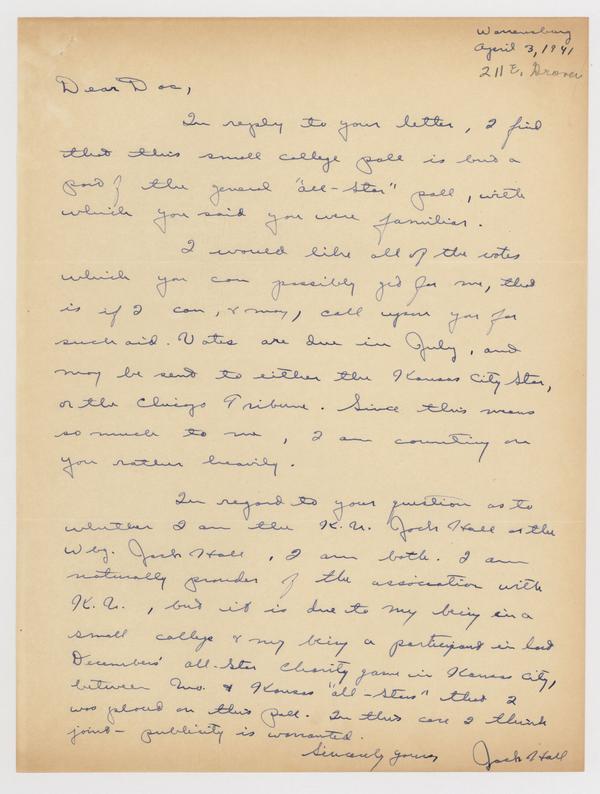 Warrensburg
April 3, 1941
211 E. Grover
Dear Doc,
In reply to your letter, I find
that this small college poll is but a
part of the general "all-star" poll, with
which you said you were familiar.
I would like all of the votes
which you can possibly get for me, that
is if I can, & may, call upon you for
such aid. Votes are due in July, and
may be sent to either the Kansas City Star,
or the Chicago Tribune. Since this means
so much to me, I am counting on
you rather heavily.
In regard to your question as to
whether I am the K.U. Jack Hall or the
Wbg. Jack Hall, I am both. I am
naturally prouder of the association with
K.U., but it is due to my being in a
small college & my being a participant in last
Decembers' all-star charity game in Kansas City,
between Mo. & Kansas "all-stars" that I
was placed on this poll. In this case I think
joint-publicity is warranted.
Sincerely yours Jack Hall